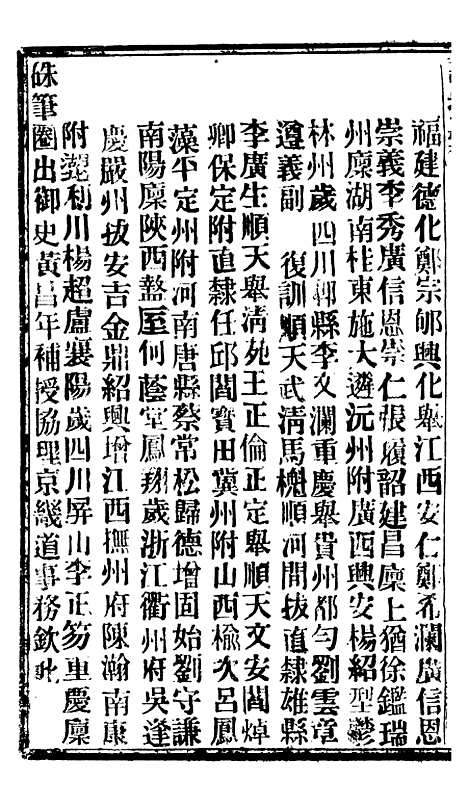 福建德化鄭宗郇興化舉江西安仁鄭希瀾廣信恩
崇義李秀廣信恩崇仁張履韶建昌廩上猶徐鑑瑞
州廩湖南桂東施大遴沅州附廣西興安楊紹型鬱
林州歲四川郫縣李文瀾重慶舉貴州都勻劉雲章
遵義副　復訓順天武清馬樾順河間拔直隸雄縣
李廣生順天舉清苑王正倫正定舉順天文安閻焯
卿保定附直隸任邱閻寶田冀州附山西榆次呂鳳
藻平定州附河南唐縣蔡常松歸德增固始劉守謙
南陽廩陝西盩厔何蔭堂鳳翔歲浙江衢州府吳逢
慶嚴州拔安吉金鼎紹興增江西撫州府陳瀚南康
附湖北利川楊超盧襄陽歲四川屏山李正笏重慶廩
硃筆圈出御史黃昌年補授協理京畿道事務欽此